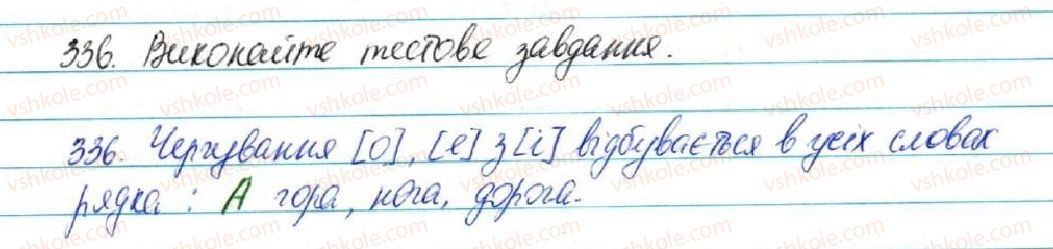 336. Виконайте тестове завдання.
336. Чергування [о], [е] з [і] відбувається в усіх словах
рядка: А гора, нога, дорога.